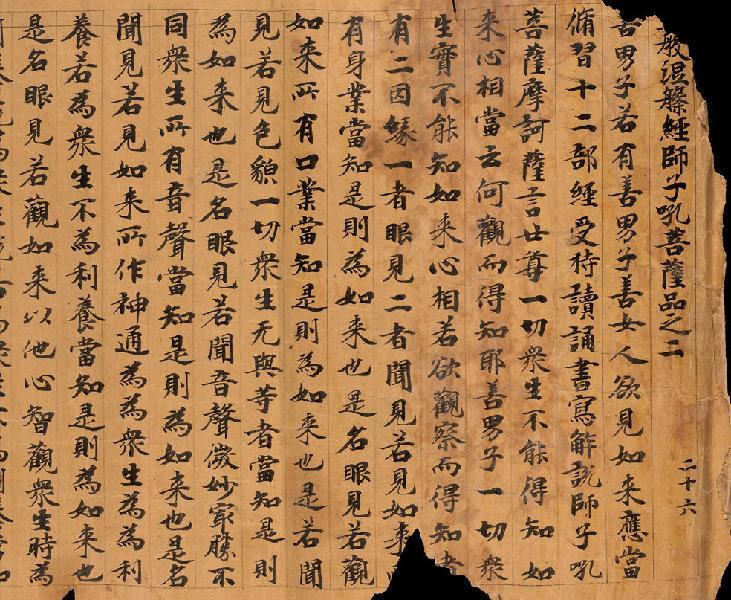 般涅槃經師子吼菩薩品之二 二十六
善男子若有善男子善女人欲見如來應當
脩習十二部經受持讀誦書寫解說師子吼
菩薩摩訶薩言世尊一切衆生不能得知如
来心相當云何觀而得知耶善男子一切衆
生實不能知如来心相若欲觀察而得知者
有二因緣一者眼見二者聞見若見如来
有身業當知是則為如来也是名眼見若觀
如来所有口業當知是則為如来也是若聞
見若見色貌一切衆生无與等者當知是則
為如来也是名眼見若聞音聲微妙冣勝不
同衆生所有音聲當知是則為如来也是名
聞見若見如来所作神通為為衆生為為利
養若為衆生不為利養當知是則為如来也
是名眼見若觀如来以他心智觀衆生時為